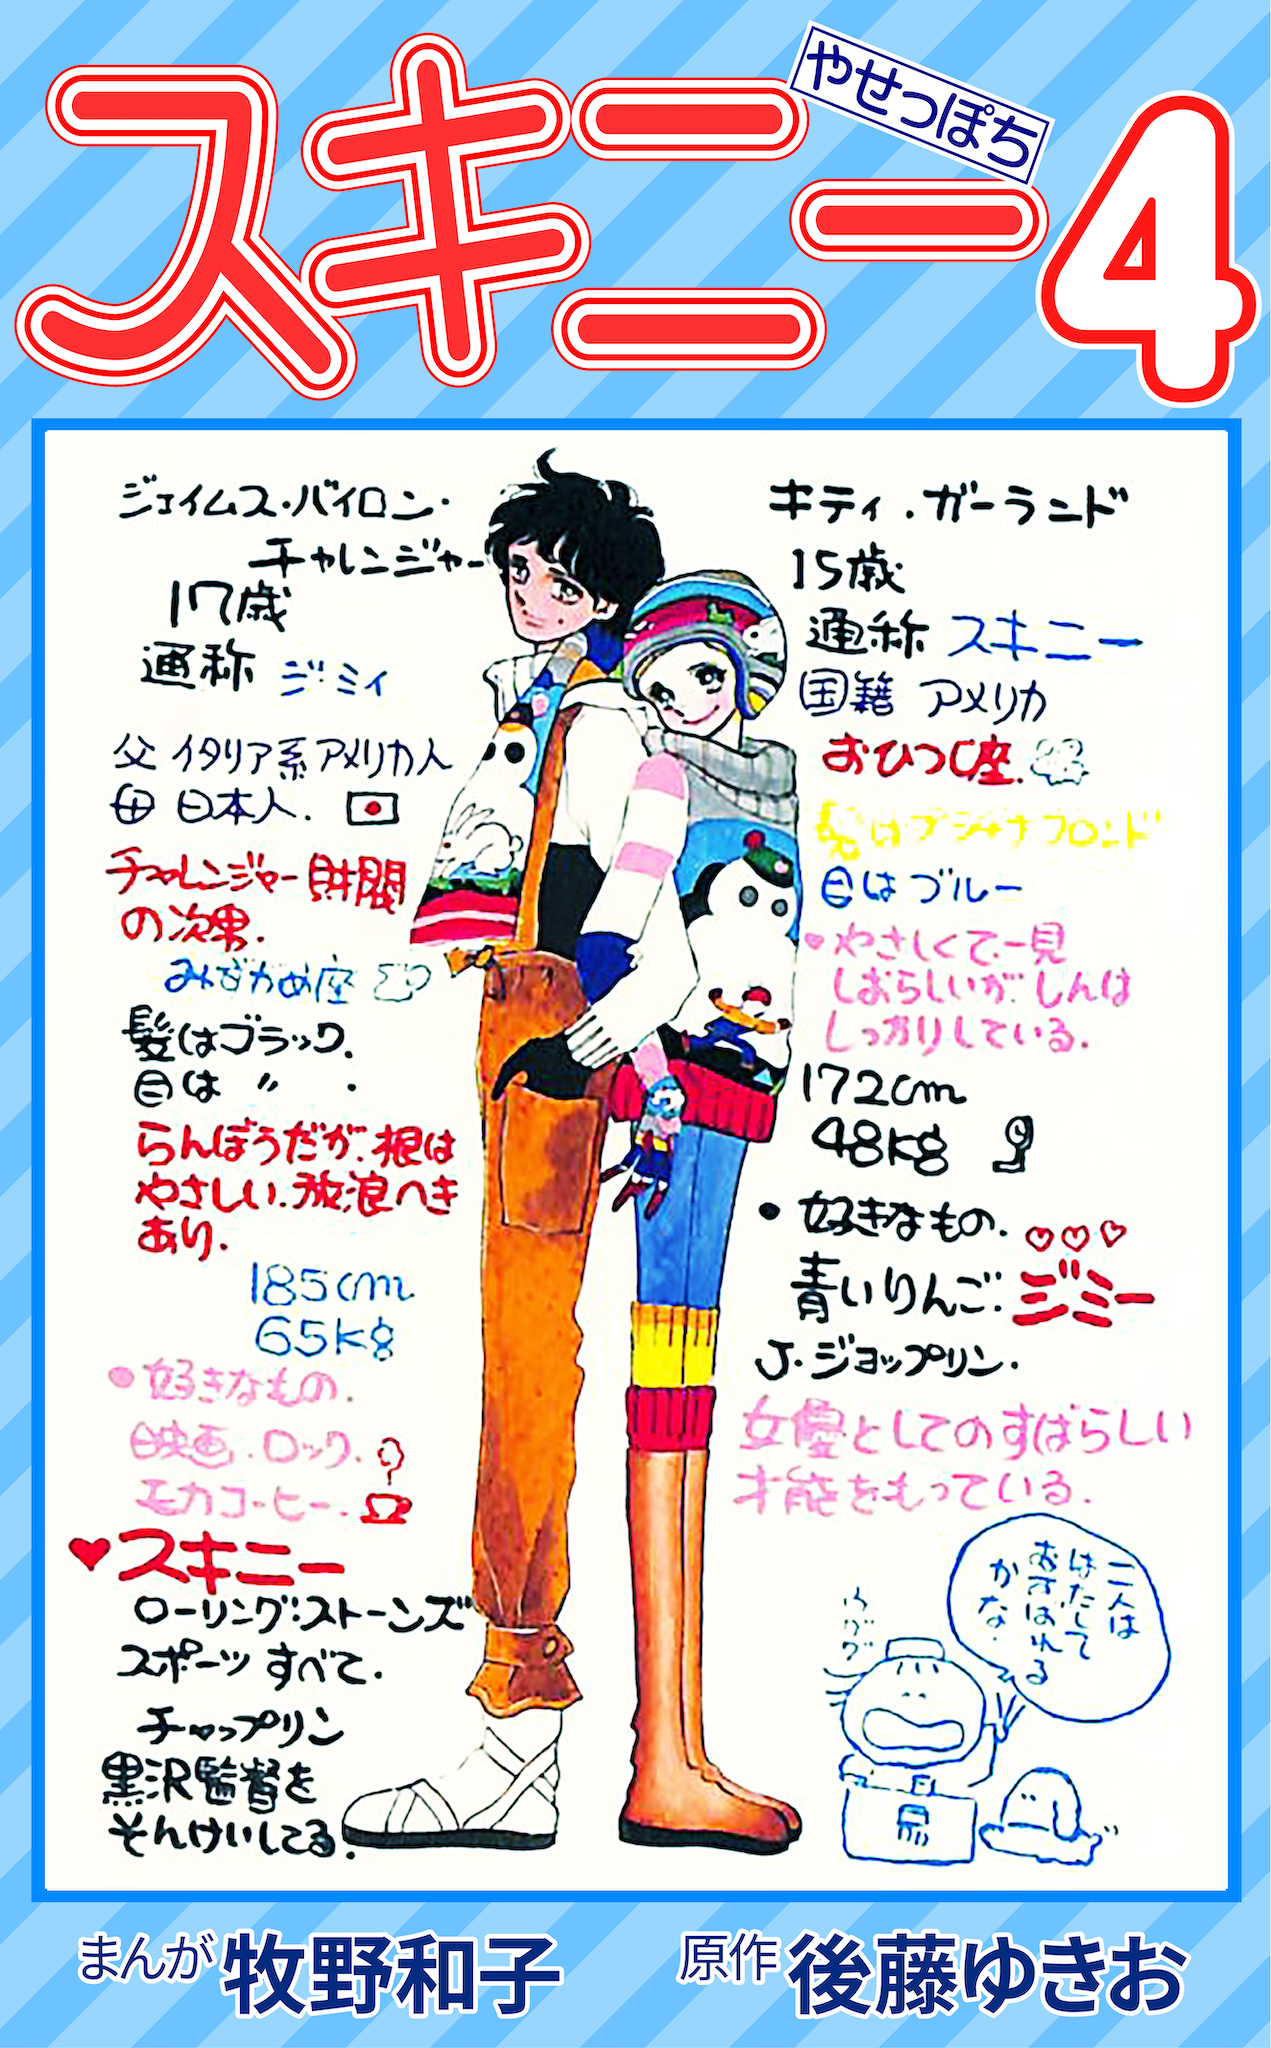 スキニー4
やせっぽち
ジェイムス・バイロン・
チャレンジャー
17歳
通称 ジミィ
父 イタリア系アメリカ人
母 日本人.
チャレンジャー財閥
の次男.
みずがめ座
髪はブラック.
目は 〃 .
らんぼうだが.根は
やさしい.放浪へき
あり.
185cm
65kg
●好きなもの.
映画.ロック.
モカコーヒー.
♥スキニー
ローリング・ストーンズ
スポーツ すべて.
チャップリン
黒沢監督を
そんけいしてる.
キティ.ガーランド
15歳
通称 スキニー
国籍 アメリカ
おひつじ座.
髪はプラチナブロンド
目はブルー
●やさしくて一見
しおらしいが.しんは
しっかりしている.
172cm
48kg
●好きなもの.♡♡♡
青いりんご.ジミー
J・ジョップリン.
女優としてのすばらしい
才能をもっている.
二人は
はたして
むすばれる
かな.
まんが 牧野和子
原作 後藤ゆきお